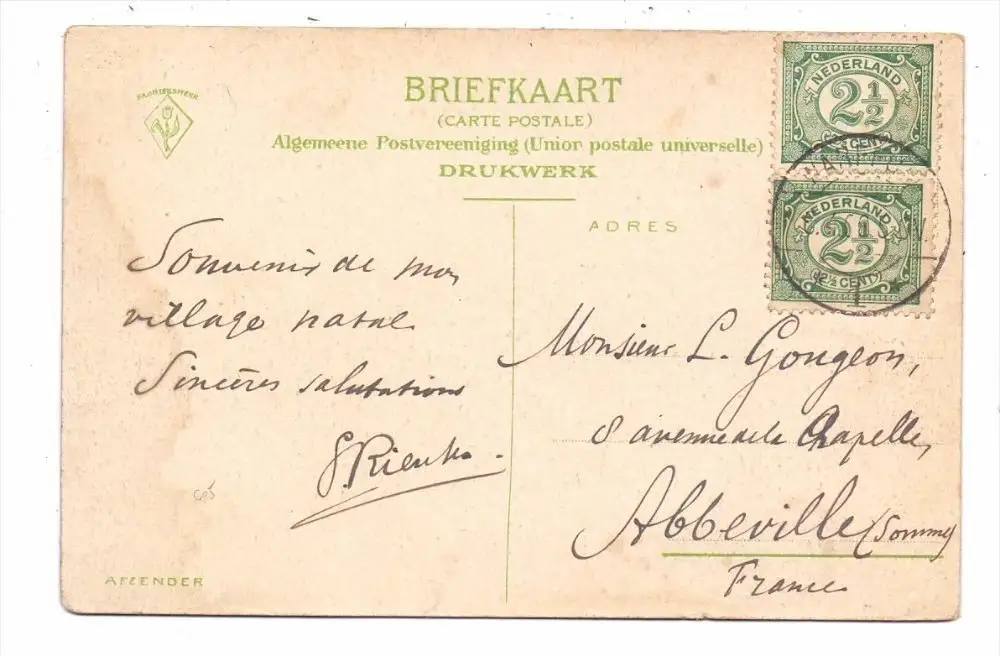 BRIEFKAART
(CARTE POSTALE)
Algemeene Postvereeniging (Union postale universelle)
DRUKWERK
NEDERLAND
2½
(2½ CENT)
NEDERLAND
2½
(2½ CENT)
ADRES
Souvenir de mon
village natal
Sincères salutations
Monsieur L. Gougeon,
8 avenue de la Chapelle,
Abbeville (Somme)
France
AFZENDER